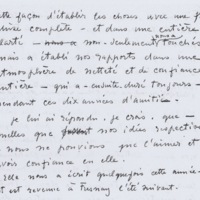 cette façon d'établir ces choses avec une f
chise complète - et dans une entière
larté - non seulement nous touche
mais a établi nos rapports dans une
tmosphère de netteté et de confiance
entière - qui a ensuite duré toujours -
endant ces dix années d'amitié.
je lui ai répondu, je crois, que
elles que nos idées respective
nous ne pouvions que l'aimer et
voir confiance en elle.
elle nous a écrit quelquefois cette année.
et est revenue à l'été suivant.